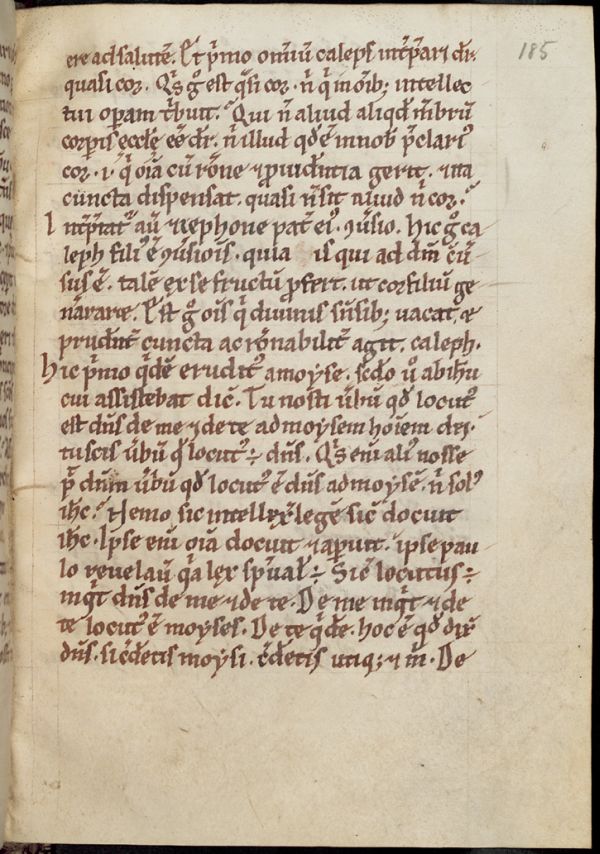 185
ere ad salutē. Et p̄mo omīu caleps int̄p̄tari dr̄.
quasi cor. Q̄s ḡ est q̄si cor. n̄ q̄ in om̄ib; intellec
tui operam t̄buit. Qui n̄ aliud aliqd̄ m̄brū
corp̄is eccl̄ę eē dr̄. n̄ illud qd̄ ē in nob̄ p̄clariꝰ
cor. i. q̄ om̄ia cū rōne ⁊ p̄uidn̄tia gerit. ⁊ ita
cuncta dispensat. quasi n̄ sit aliud n̄ cor.
Int̄p̄tat̄ au̅ ⁊ iephone pat̄ eiꝰ. ꝯu̅sio. Hic ḡ ca
leph filiꝰ ē ꝯu̅sioīs. quia is qui ad dm̄ c̄u̅
sus ē. talē ex se fructū p̄fert. ut cor filiū ge
n̄arare. Est ḡ oīs q̄ diuinis sn̄sib; uacat. ⁊
prudn̄t̄ cuncta ac rōnabilit̄ agit. caleph.
Hic p̄mo qd̄ē eruditꝰ a moyse. scd̄o u̅o ab ih̄u
cui assistebat dic̄. Tu nosti u̅bū qd̄ locutꝰ
est dn̄s de me ⁊ de te ad moysem hoīem dei.
tu scis u̅bū qd̄ locutꝰ ÷ dn̄s. Q̄s eni̅ aliꝰ nosse
p̄ dn̄m u̅bū qd̄ locutꝰ ē dn̄s ad moysē. n̄ solꝰ
ih̄c. Nemo sic intellexit̄ legē sic̄ docuit
ih̄c. Ipse eni̅ oīa docuit ⁊ ap̄uit. ipse pau
lo reuelau̅ q̄a lex sp̄ual̄ ÷ Si ē locutus ÷
inq̄t dn̄s de me ⁊ de te. De me inq̄t ⁊ de
te locutꝰ ē moyses. De te qd̄ē. hoc ē qd̄ dix̄
dn̄s. si c̄detis moysi. c̄detis utiq; ⁊ m̄. De